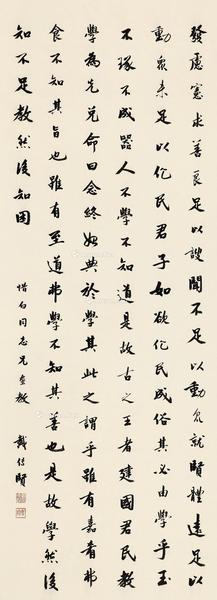 發慮憲求善良足以謏聞不足以動眾就賢體遠足以
動眾未足以化民君子如欲化民成俗其必由學乎玉
不琢不成器人不學不知道是故古之王者建國君民教
學為先兌命曰念終始典於學其此之謂乎雖有嘉肴弗
食不知其旨也雖有至道弗學不知其善也是故學然後
知不足教然後知困
惜白同志兄教 戴傳賢